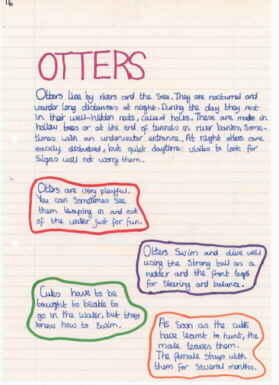 16
OTTERS
Otters live by rivers and the sea. They are nocturnal and
wander long distances at night. During the day they rest
in their well-hidden nests, called holts. These are made in
hollow trees or at the end of tunnels in river banks, Some-
times with an underwater entrance. At night otters are
easily disturbed, but quiet daytime visits to look for
signs will not worry them.
Otters are very playful.
You can sometimes see
them leaping in and out
of the water just for fun.
Otters Swim and dive well
using the strong tail as a
rudder and the front legs
for steering and balance.
Cubs have to be
brought to be able to
go in the water, but they
know how to swim.
As Soon as the cubs
have learnt to hunt, the
male leaves them.
The female stays with
them for several months.